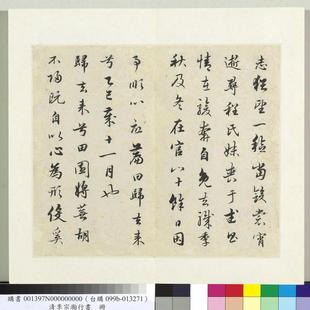 志猶望一稔當斂裳宵
逝尋程氏妹喪于武昌
情在駿奔自免去職季
秋及冬在官八十餘日因
事順心命篇曰歸去來
兮乙巳歲十一月也
歸去來兮田園將蕪胡
不歸既自以心為形役奚
購書 001397N000000000 (台購 099b-013271)
清李宗瀚行書 冊